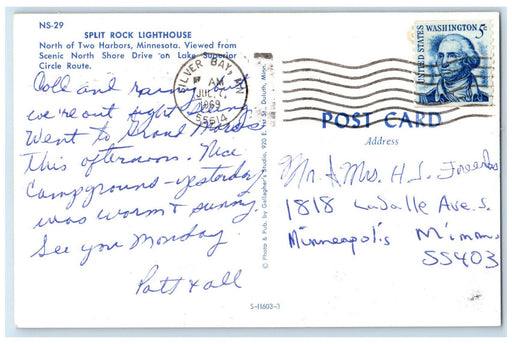 NS-29
SPLIT ROCK LIGHTHOUSE
North of Two Harbors, Minnesota. Viewed from
Scenic North Shore Drive on Lake Superior
Circle Route.
Cold and rainy but
we're out sight seeing
Went to Grand Marais
this afternoon. Nice
Campground - yesterday
was warm & sunny.
See you Monday
Patt & all
SILVER BAY, MN
AM
JUL
1969
55614
© Photo & Pub. by Gallagher's Studio, 920 E. 1st St. Duluth, Minn.
UNITED STATES
WASHINGTON 5c
POST CARD
Address
Mr. & Mrs. H. L.
1818 LaSalle Ave. S.
Minneapolis Minn.
55403
S-11603-3